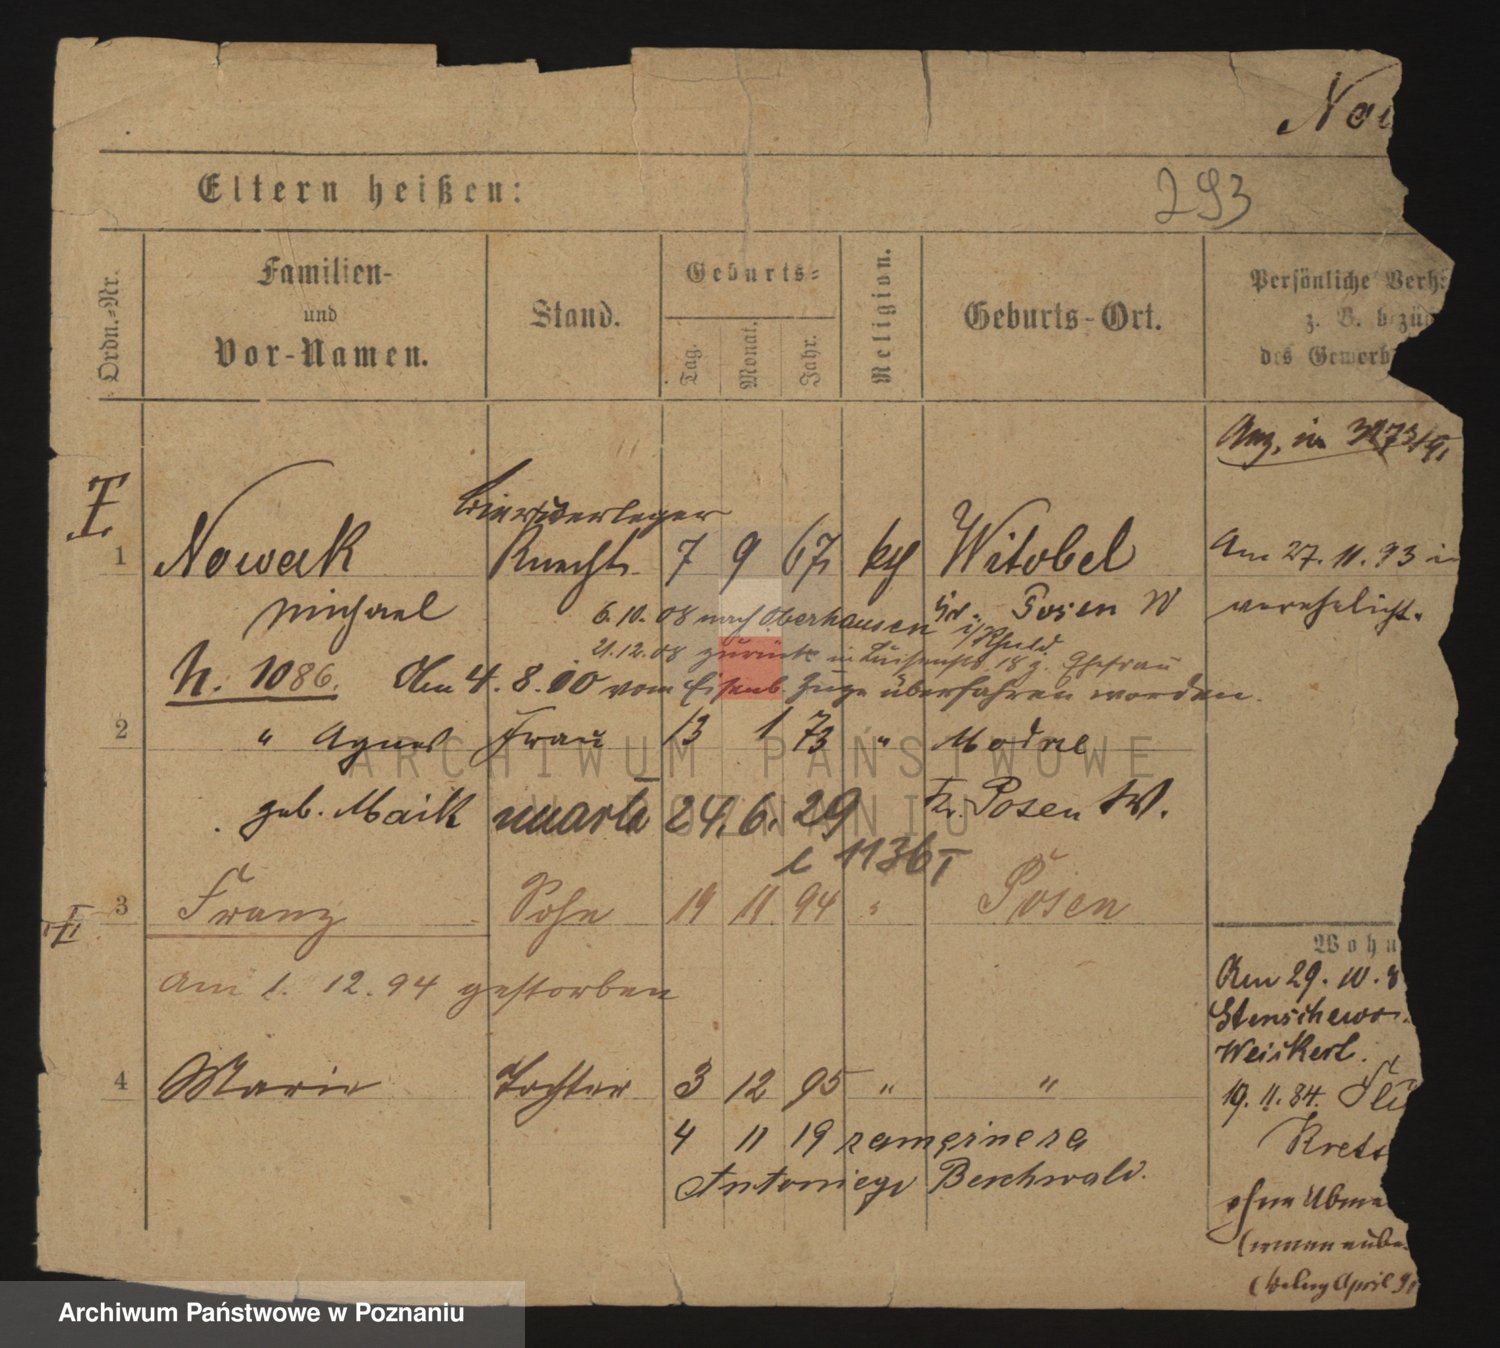 293
Eltern heißen:
Ordn.-Nr.
Familien-
und
Vor-Namen.
Stand.
Geburts-
Tag.
Monat.
Jahr.
Religion.
Geburts-Ort.
Persönliche Verh
z. B. bezüg
des Gewerb
I
Bierverleger
1 Nowak Knecht 7 9 67 kth Witobel Am 27. 11. 93 in
Michael Posen W verehelicht.
6.10.08 nach Oberhausen i/Rheld.
21.12.08 zurück in 18 z. Ehefrau
N. 1086. Am 4. 8. 00 vom Eisenb. Zuge überfahren worden.
2 " Agnes Frau 13 1 73 " Modre
geb. Maik 24. 6. 29 Kr. Posen W.
1136 I
3 Franz Sohn 19 11 94 " Posen
Am 1. 12. 94 gestorben
Wohn
Am 29. 10.
Stenschewo
4 Marie Tochter 3 12 95 " "
19. 11. 84.
4 11 19 zam
Antoniego
ohne Abme
April
ARCHIWUM PAŃSTWOWE
W POZNANIU
Archiwum Państwowe w Poznaniu